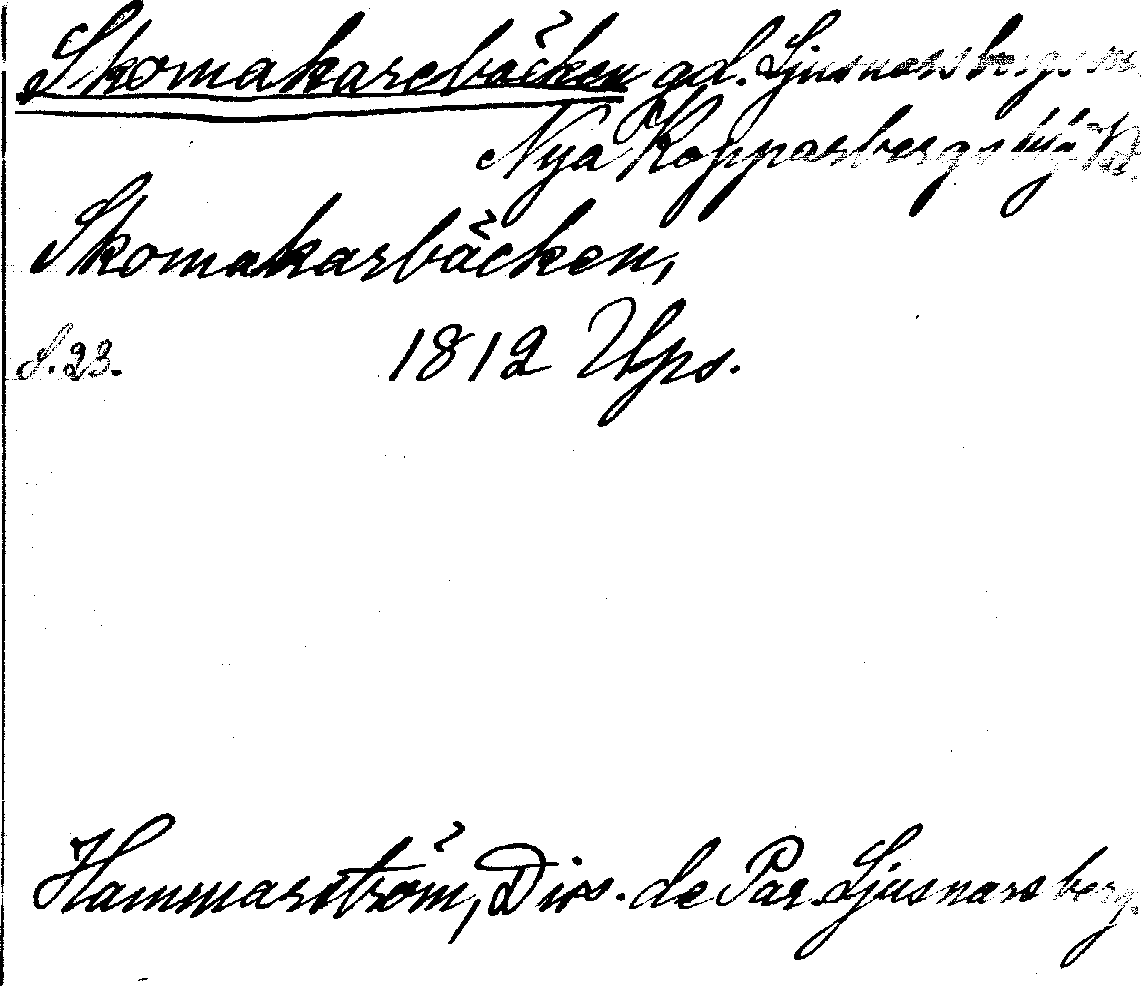 Skomakarebäcken gd. Ljusnarsbergs sn
Nya Kopparbergs
Skomakarbäcken,
S. 23. 1812 Ups.
Hammarström, Diss. de Par. Ljusnarsberg.